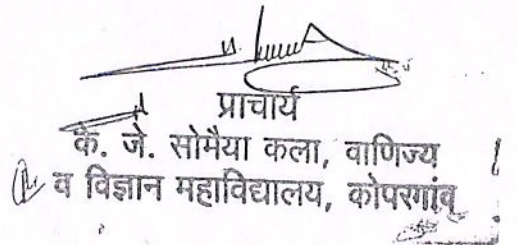 प्राचार्य
के. जे. सोमैया कला, वाणिज्य
व विज्ञान महाविद्यालय, कोपरगांव